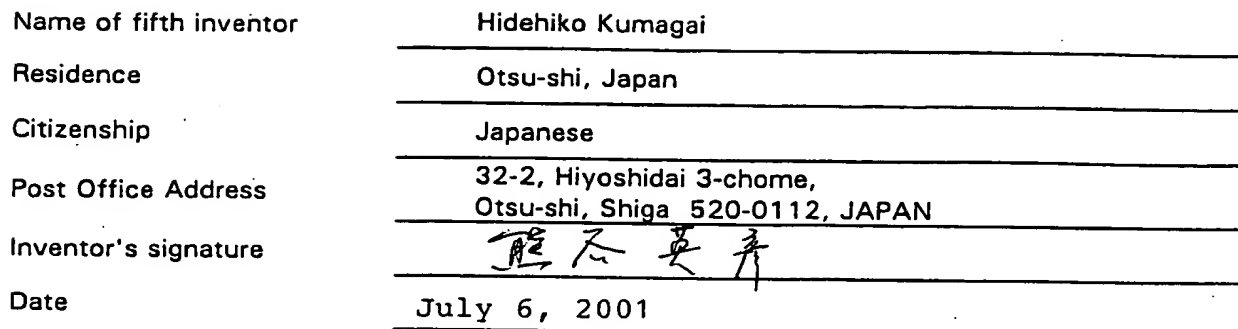 Name of fifth inventor Hidehiko Kumagai
Residence Otsu-shi, Japan
Citizenship Japanese
Post Office Address 32-2, Hiyoshidai 3-chome,
Otsu-shi, Shiga 520-0112, JAPAN
Inventor's signature 熊谷英彦
Date July 6, 2001